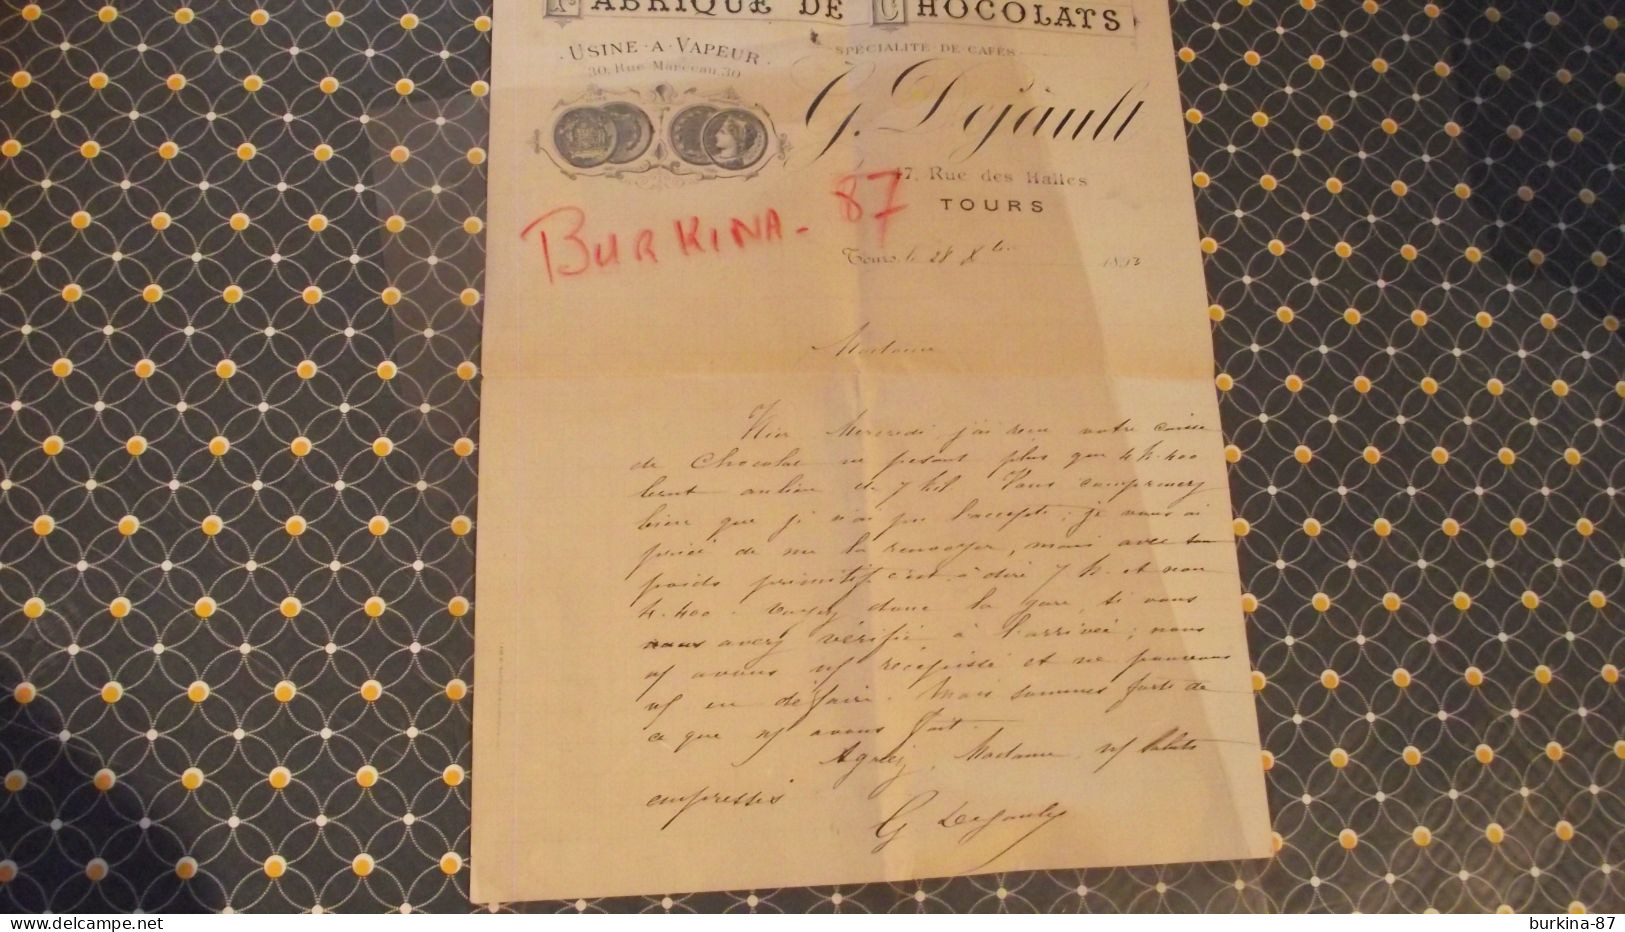 FABRIQUE DE CHOCOLATS
USINE - A - VAPEUR
30, Rue Marceau, 30
SPÉCIALITÉ DE CAFÉS
G. Dejault
47, Rue des Halles
TOURS
BURKINA - 87
Tours, le 28 Xbre 1893
Madame
Hier Mercredi j'ai reçu votre caisse
de Chocolat ne pesant plus que 4 k. 400
brut au lieu de 7 kil. Vous comprenez
bien que je n'ai pu l'accepter ; je vous ai
prié de me la renvoyer, mais avec son
poids primitif c'est à dire 7 k. et non
4. 400. Voyez donc la gare, si vous
avez vérifié à l'arrivée ; nous
n/ avons n/ récépissé et ne pouvons
n/ en défaire. Mais sommes forts de
ce que n/ avons fait.
Agréez, Madame, n/ Saluts
empressés
G. Dejault
burkina-87